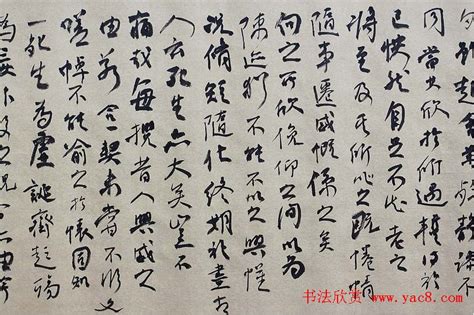 同當其欣於所遇輒得於
已怏然自足不知老之
將至及其所之既惓情
隨事遷感慨係之矣
向之所欣俛仰之間以為
陳迹猶不能不以之興懷
況脩短隨化終期於盡古
人云死生亦大矣豈不
痛哉每攬昔人興感之
由若合一契未嘗不臨文
嗟悼不能喻之於懷固知
一死生為虛誕齊彭殤
為妄作後之視今亦由今
书法欣赏 http://www.yac8.com